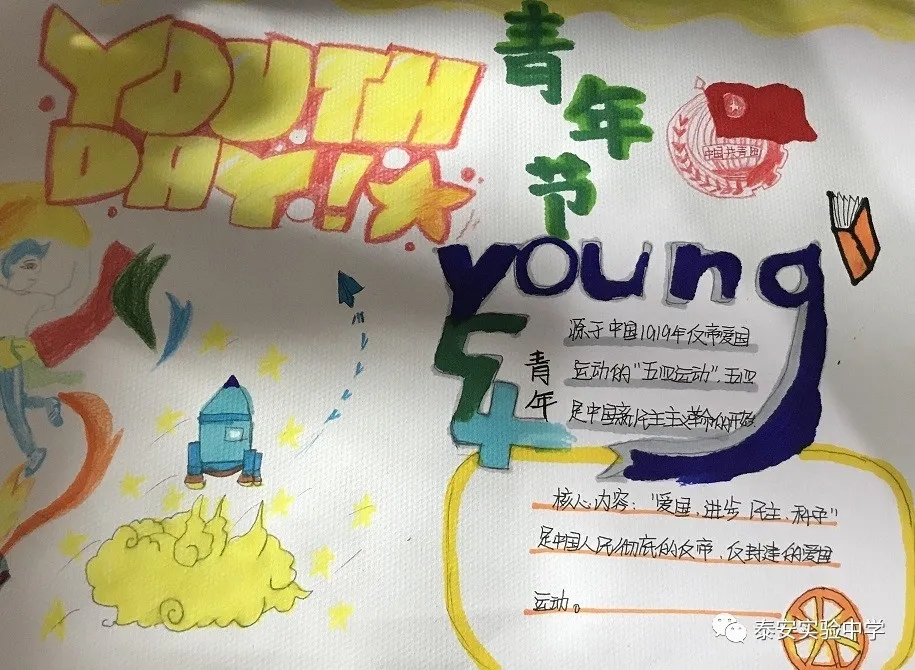 YOUTH
DAY!
青年节
中国共青团
young
54
青年
源于中国1919年反帝爱国
运动的“五四运动”，五四
是中国新民主主义革命的开端
核心内容：“爱国、进步、民主、科学”
是中国人民彻底的反帝、反封建的爱国
运动。
泰安实验中学